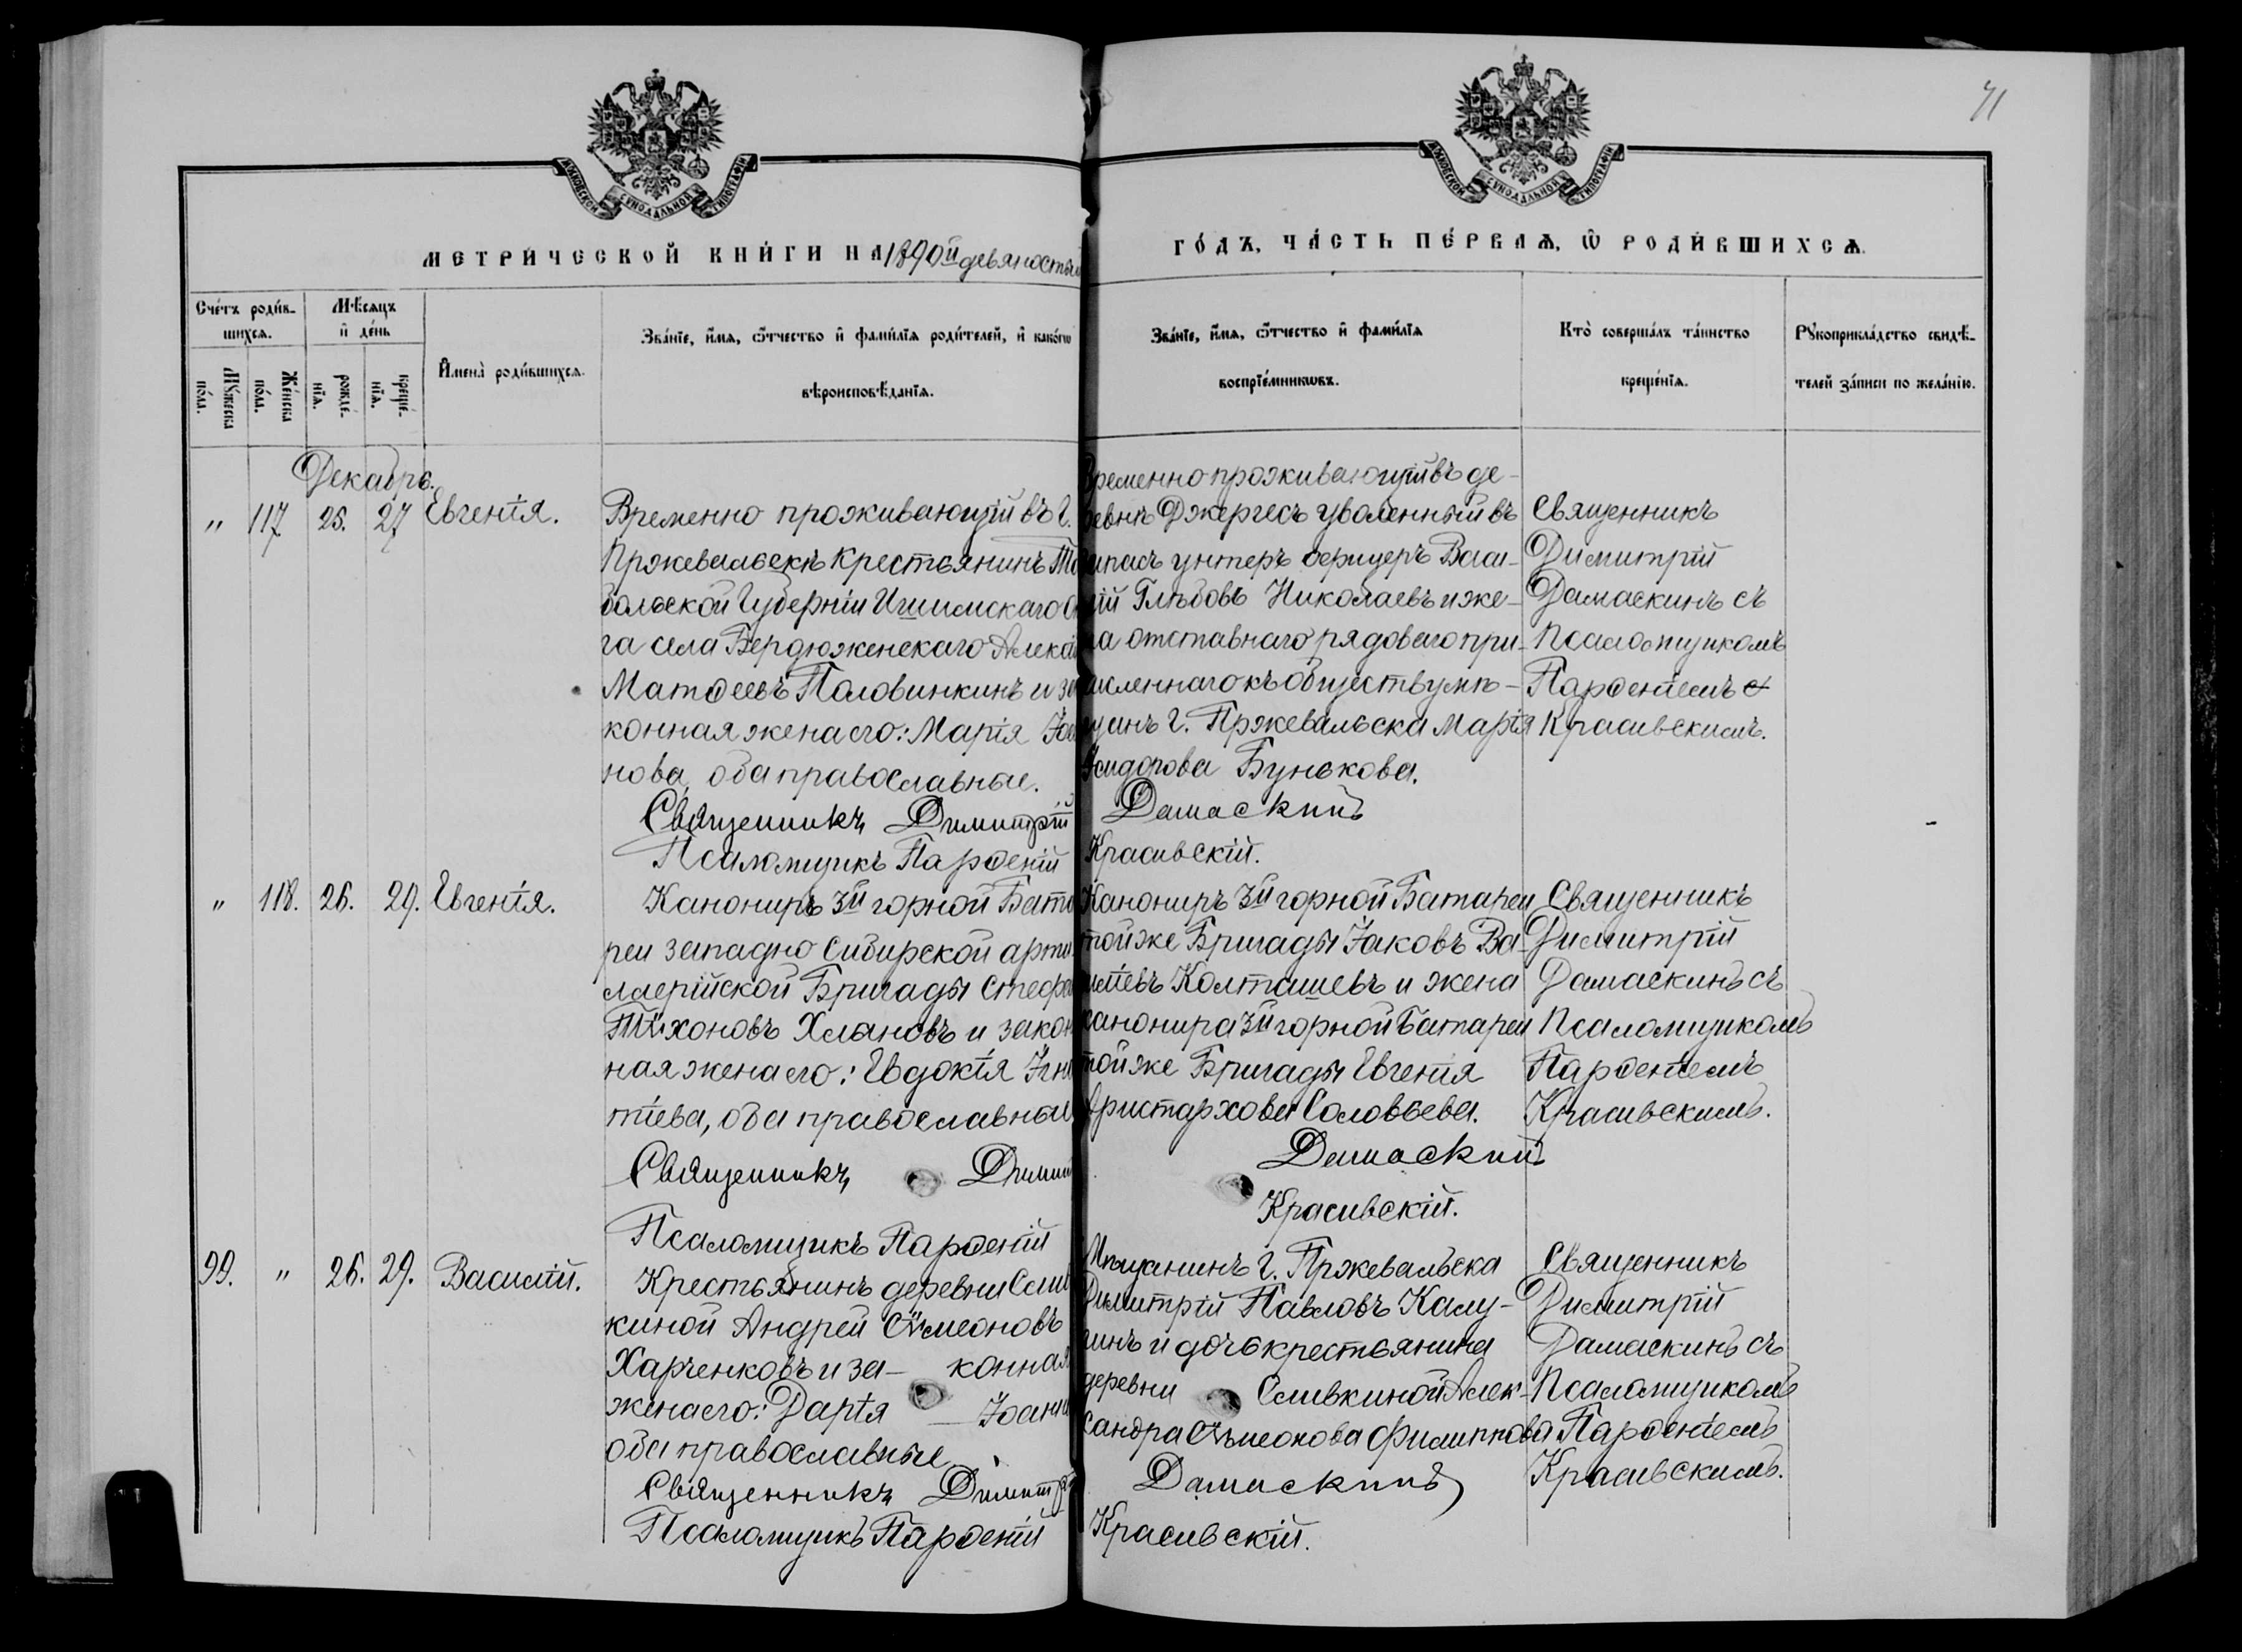 71
МОСКОВСКОЙ СѴНОДАЛЬНОЙ ТИПОГРАФІИ
МОСКОВСКОЙ СѴНОДАЛЬНОЙ ТИПОГРАФІИ
МЕТРИ́ЧЕСКОЙ КНИ́ГИ НА 1890й девяностый
ГО́ДЪ, ЧА́СТЬ ПЕ́РВАѦ, Ѿ РОДИ́ВШИХСѦ.
Сче́тъ роди́в-
шихсѧ.
Мꙋ́жеска
по́лꙋ.
Же́нска
по́лꙋ.
Мѣ́сѧцъ
и҆ де́нь
рожде́-
нїѧ.
креще́-
нїѧ.
И҆мена̀ роди́вшихсѧ.
Зва́нїе, и҆́мѧ, ѻ҆́тчество и҆ фами́лїѧ роди́телей, и҆ како́гѡ
вѣроисповѣ́данїѧ.
Зва́нїе, и҆́мѧ, ѻ҆́тчество и҆ фами́лїѧ
воспрїе́мникѡвъ.
Кто̀ соверша́лъ та́инство
креще́нїѧ.
Рꙋкоприкла́дство свидѣ́-
телей за́писи по жела́нїю.
Декабрь.
" 117 25. 27 Евгенія.
Временно проживающій въ г.
Пржевальскѣ крестьянинъ То
больской Губерніи Ишимскаго О
га села Бердюженскаго Алекс
Матѳеевъ Половинкинъ и за
конная жена его: Марія Іоа
нова, оба православные.
Священникъ Димитрій
Псаломщикъ Парѳеній
Временно проживающій въ де-
ревнѣ Джергесъ уволенный въ
запасъ унтеръ офицеръ Васи-
лій Глѣбовъ Николаевъ и же-
на отставнаго рядоваго при-
численнаго къ обществу мѣ-
щанъ г. Пржевальска Марія
Исидорова Бунькова.
Дамаскинъ
Красивскій.
Священникъ
Димитрій
Дамаскинъ съ
Псаломщикомъ
Парѳеніемъ
Красивскимъ.
" 118. 26. 29. Евгенія.
Канониръ 3й горной Бата
реи западно Сибирской арти
ллерійской Бригады Стефа
Тѵхоновъ Хлановъ и закон
ная жена его: Евдокія Игна
тіева, оба православные
Священникъ Димит
Псаломщикъ Парѳеній
Канониръ 3й горной Батареи
той же Бригады Іаковъ Ва-
силіевъ Колташевъ и жена
канонира 3й горной Батареи
той же Бригады Евгенія
Аристархова Соловьева.
Дамаскинъ
Красивскій.
Священникъ
Димитрій
Дамаскинъ съ
Псаломщикомъ
Парѳеніемъ
Красивскимъ.
99. " 26. 29. Василій.
Крестьянинъ деревни Слив
киной Андрей Сѵмеоновъ
Харченковъ и за- конная
жена его: Дарія Іоанно
оба православные
Священникъ Димитрі
Псаломщикъ Парѳеній
Мѣщанинъ г. Пржевальска
Димитрій Павловъ Калу-
гинъ и дочь крестьянина
деревни Сливкиной Алек-
сандра Сѵмеонова Филиппова
Дамаскинъ
Красивскій.
Священникъ
Димитрій
Дамаскинъ съ
Псаломщикомъ
Парѳеніемъ
Красивскимъ.